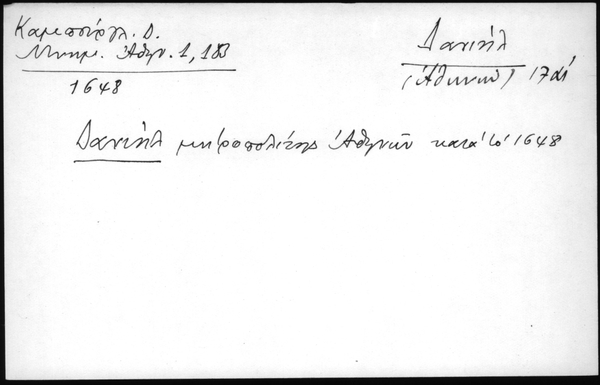 Καμπούρογλ. Δ.
Μνημ. Ἀθην. 1, 183
1648
Δανιήλ
(Ἀθηνῶν) 17 αἰ
Δανιήλ μητροπολίτης Ἀθηνῶν κατὰ τὸ 1648